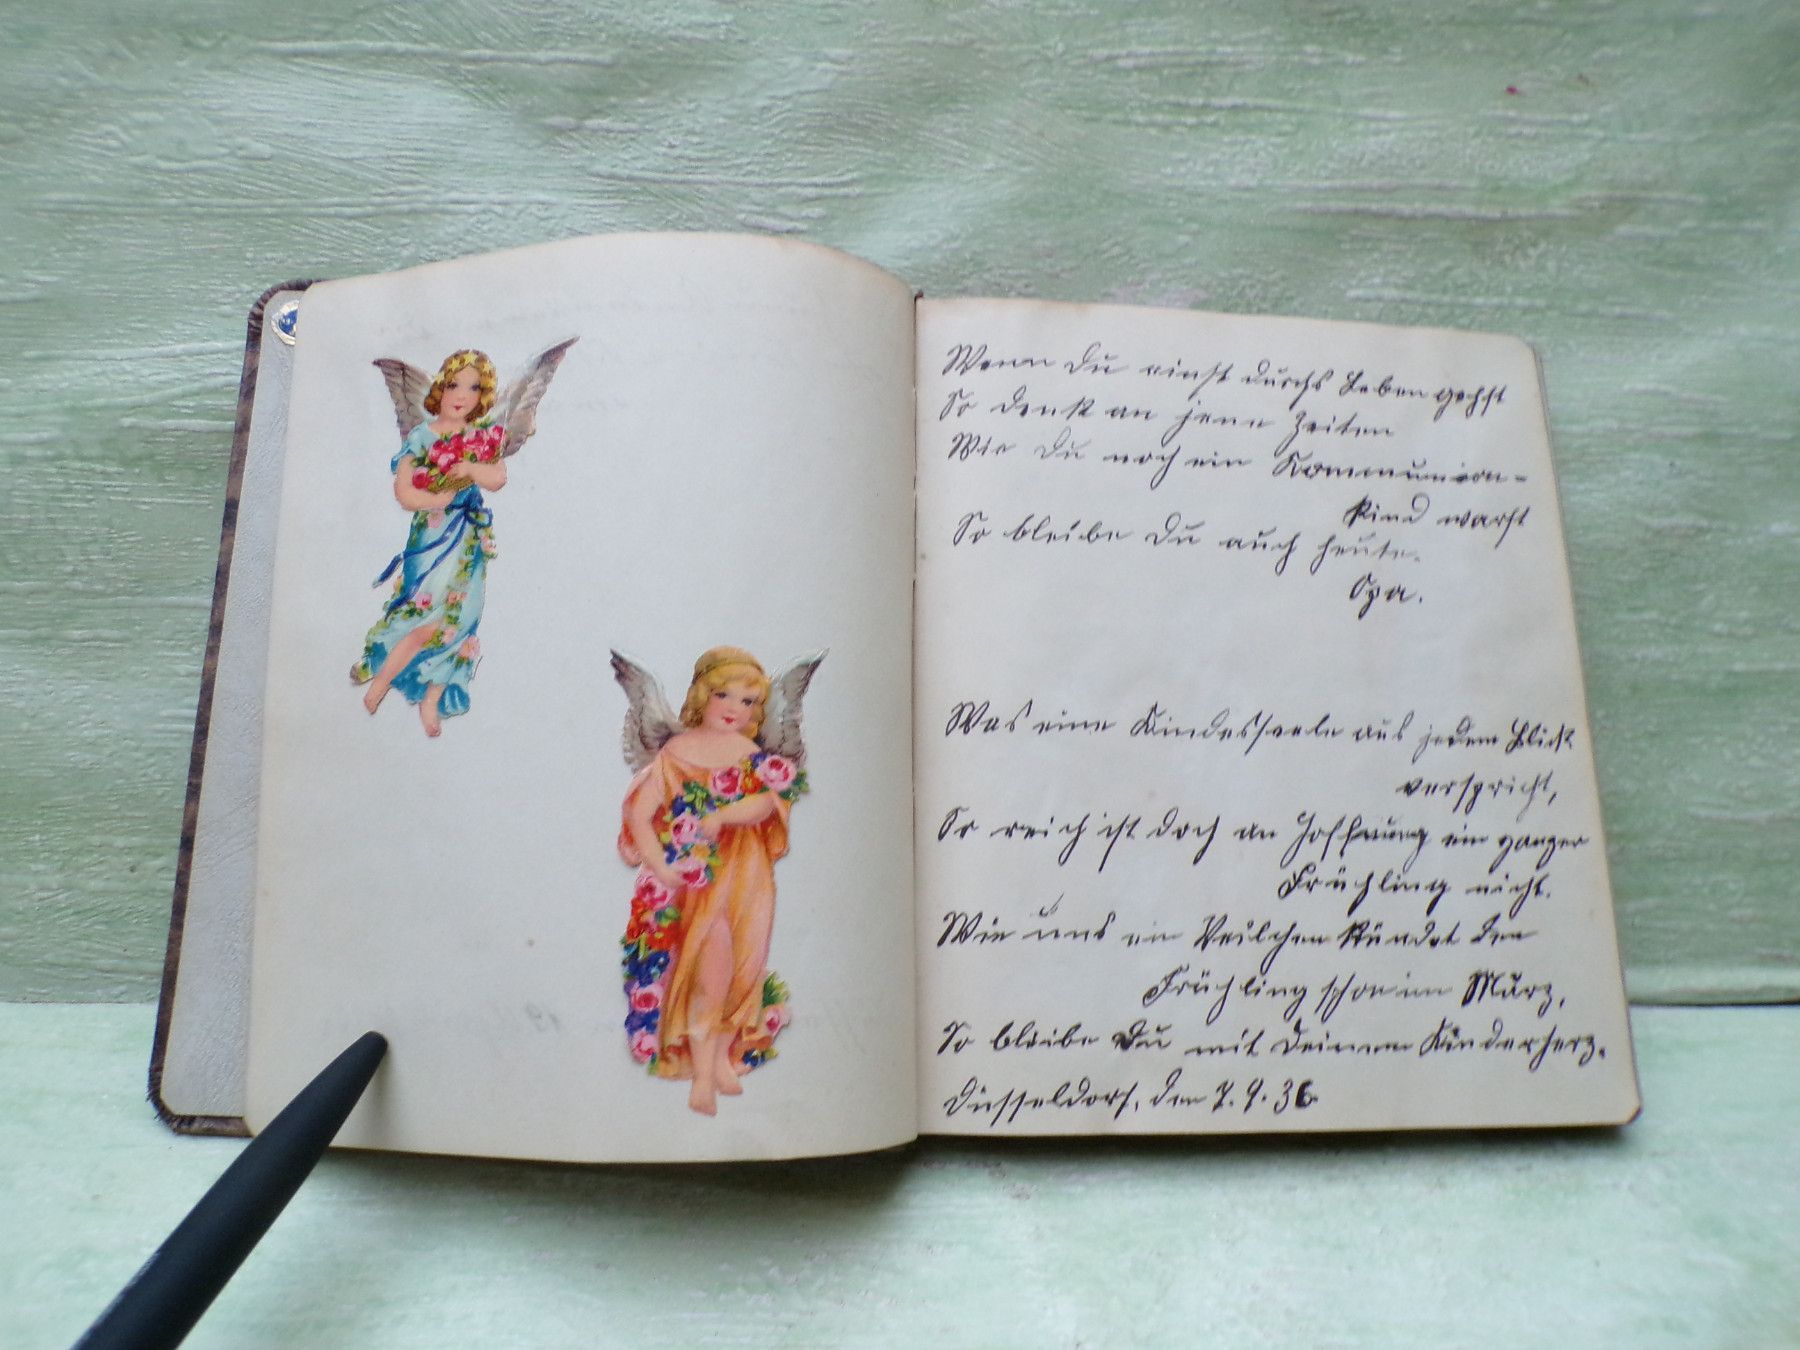 Wenn Du einst durchs Leben gehst
So denk an jene Zeiten
Wie Du noch ein Kommunion-
kind warst
So bleibe Du auch heute.
Opa.
Was eine Kindesseele aus jedem Blick
verspricht,
So reich ist doch an Hoffnung ein ganzer
Frühling nicht.
Wie uns ein Veilchen kündet den
Frühling schon im März,
So bleibe Du mit Deinem Kinderherz.
Düsseldorf, den 7.9.36